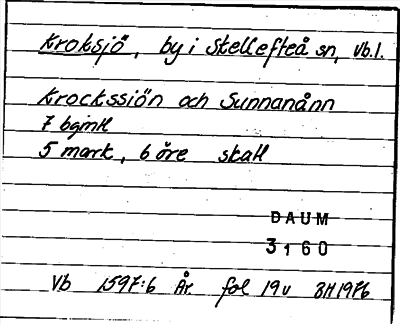 Kroksjö, by i Skellefteå sn, Vb.l.
Krockssiön och Sunnanånn
7
5 mark, 6 öre skatt
DAUM
3160
Vb 1597:6 År fol 19v BH 1976